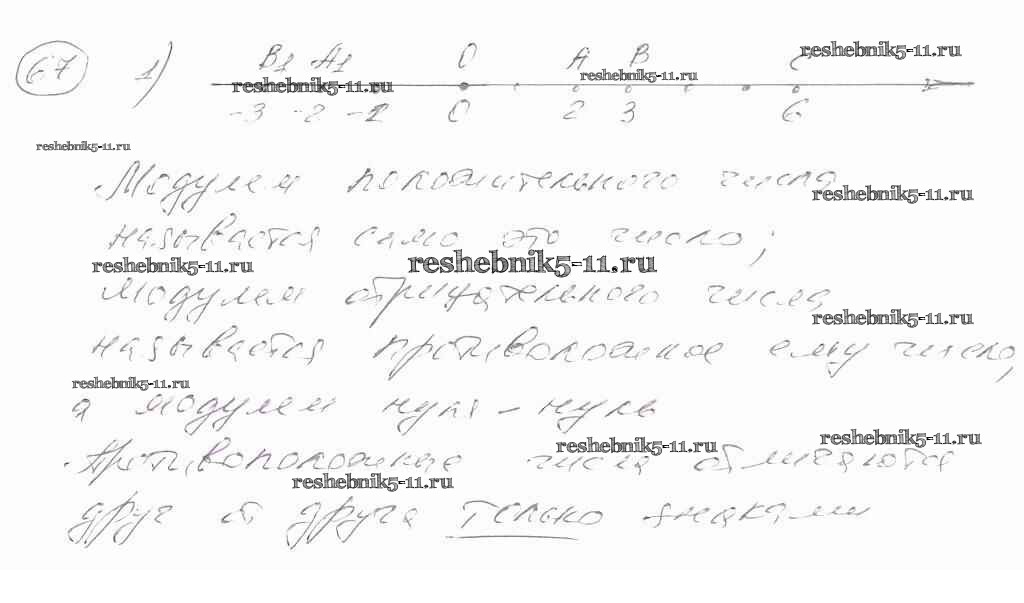 67 1) B1 A1 O A B C reshebnik5-11.ru
reshebnik5-11.ru reshebnik5-11.ru
-3 -2 -1 0 2 3 6
reshebnik5-11.ru
Модулем положительного числа
reshebnik5-11.ru
называется само это число;
reshebnik5-11.ru reshebnik5-11.ru
Модулем отрицательного числа
reshebnik5-11.ru
называется противоположное ему число,
reshebnik5-11.ru
а модулем нуля - нуль
reshebnik5-11.ru reshebnik5-11.ru
Противоположные числа отличаются
reshebnik5-11.ru
друг от друга только знаками